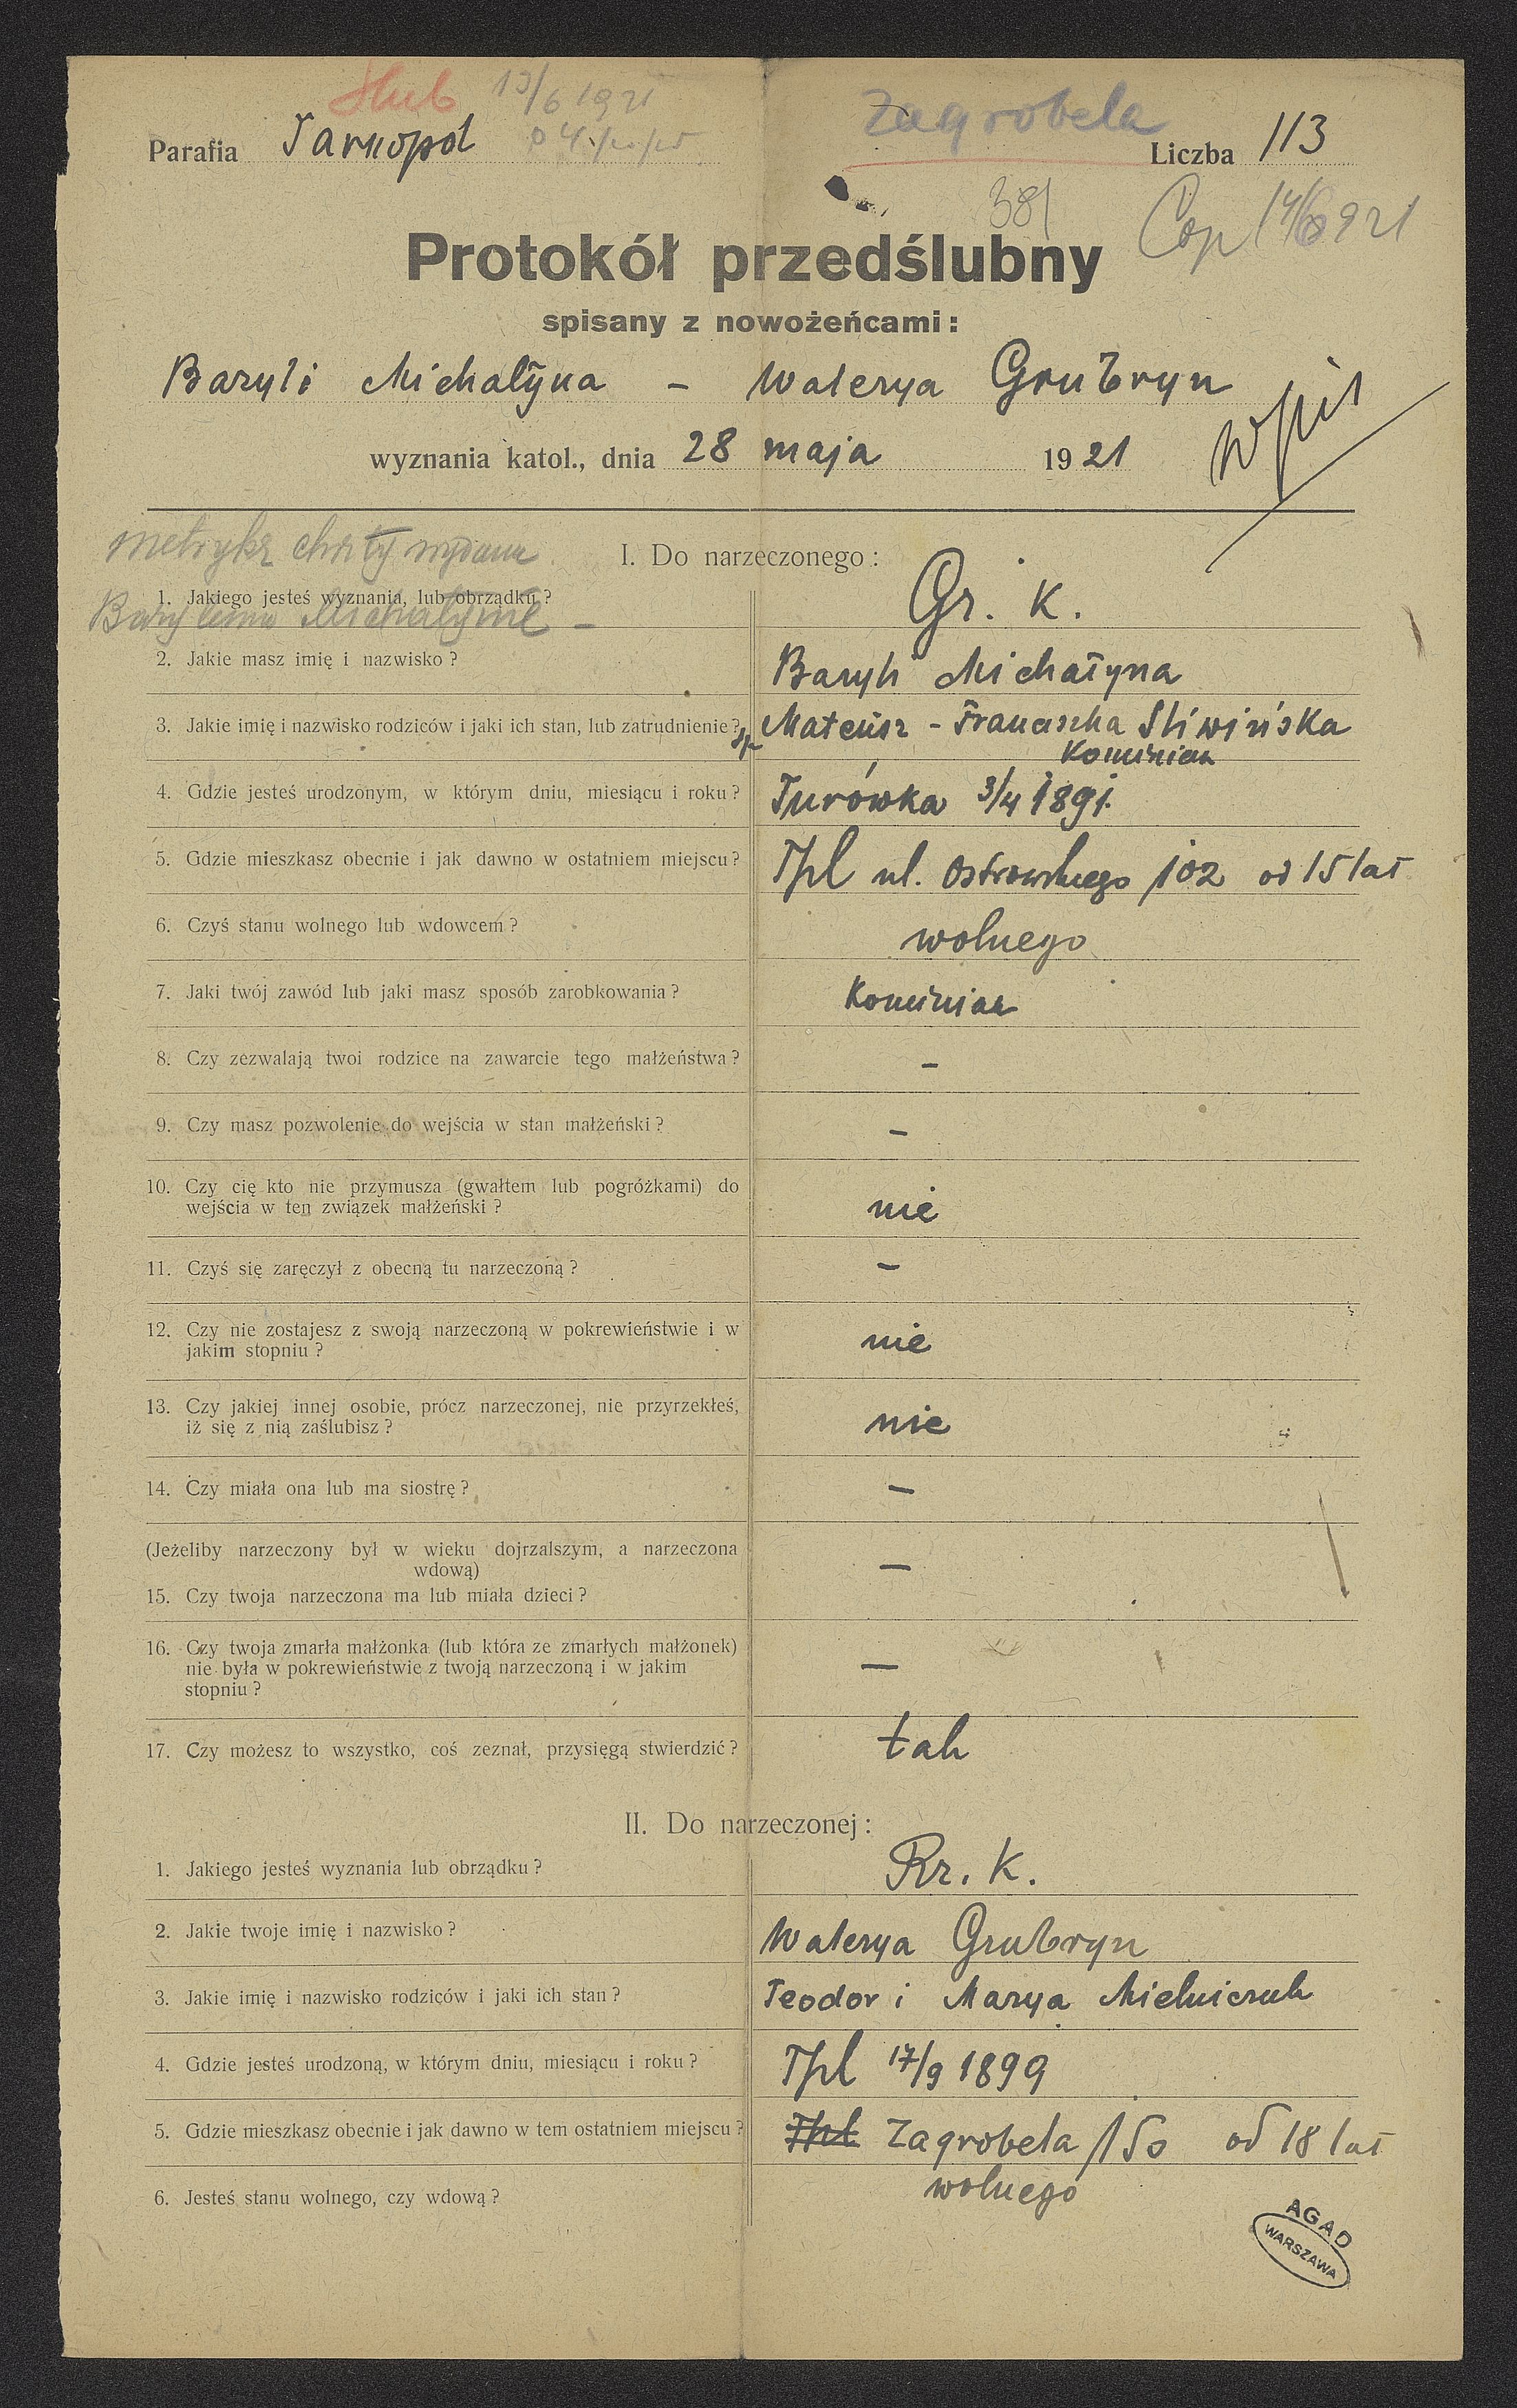 Ślub 13/6 1921
Zagrobela
Parafia Tarnopol
o 4 po poł
Liczba 113
381
Cop 14/6 921
Protokół przedślubny
spisany z nowożeńcami:
Baryli Michałyna – Walerya Grubryn
wyznania katol., dnia 28 maja 1921
Wpis
metrykę chrztu wydano
Barylemu Michałynie –
I. Do narzeczonego:
1. Jakiego jesteś wyznania, lub obrządku? Gr. K.
2. Jakie masz imię i nazwisko? Baryli Michałyna
3. Jakie imię i nazwisko rodziców i jaki ich stan, lub zatrudnienie? Mateusz – Franciszka Śliwińska
Kominiar
4. Gdzie jesteś urodzonym, w którym dniu, miesiącu i roku? Turówka 3/4 1891.
5. Gdzie mieszkasz obecnie i jak dawno w ostatniem miejscu? Tpl ul. Ostrowskiego 102 od 15 lat
6. Czyś stanu wolnego lub wdowcem? wolnego
7. Jaki twój zawód lub jaki masz sposób zarobkowania? Kominiar
8. Czy zezwalają twoi rodzice na zawarcie tego małżeństwa? –
9. Czy masz pozwolenie do wejścia w stan małżeński? –
10. Czy cię kto nie przymusza (gwałtem lub pogróżkami) do
wejścia w ten związek małżeński? nie
11. Czyś się zaręczył z obecną tu narzeczoną? –
12. Czy nie zostajesz z swoją narzeczoną w pokrewieństwie i w
jakim stopniu? nie
13. Czy jakiej innej osobie, prócz narzeczonej, nie przyrzekłeś,
iż się z nią zaślubisz? nie
14. Czy miała ona lub ma siostrę? –
(Jeżeliby narzeczony był w wieku dojrzalszym, a narzeczona
wdową) –
15. Czy twoja narzeczona ma lub miała dzieci?
16. Czy twoja zmarła małżonka (lub która ze zmarłych małżonek)
nie była w pokrewieństwie z twoją narzeczoną i w jakim –
stopniu?
17. Czy możesz to wszystko, coś zeznał, przysięgą stwierdzić? tak
II. Do narzeczonej:
1. Jakiego jesteś wyznania lub obrządku? Rz. K.
2. Jakie twoje imię i nazwisko? Walerya Grubryn
3. Jakie imię i nazwisko rodziców i jaki ich stan? Teodor i Marya Mielniczuk
4. Gdzie jesteś urodzoną, w którym dniu, miesiącu i roku? Tpl 17/9 1899
5. Gdzie mieszkasz obecnie i jak dawno w tem ostatniem miejscu? Tpl Zagrobela 150 od 18 lat
6. Jesteś stanu wolnego, czy wdową? wolnego
AGAD
WARSZAWA